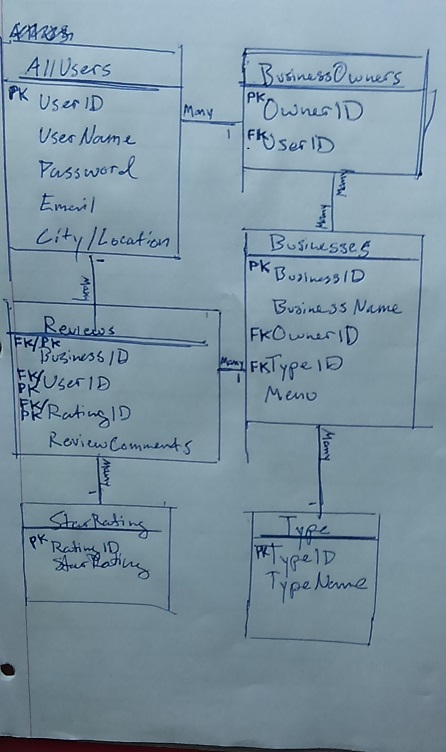 AllUsers
PK UserID
UserName
Password
Email
City/Location
Many
1
BusinessOwners
PK OwnerID
FK UserID
Many
Many
Businesses
PK BusinessID
Business Name
FK OwnerID
FK TypeID
Menu
1
Many
Reviews
FK/PK BusinessID
FK/PK UserID
FK/PK RatingID
ReviewComments
Many
1
Many
1
StarRating
PK RatingID
StarRating
Many
1
Type
PK TypeID
TypeName